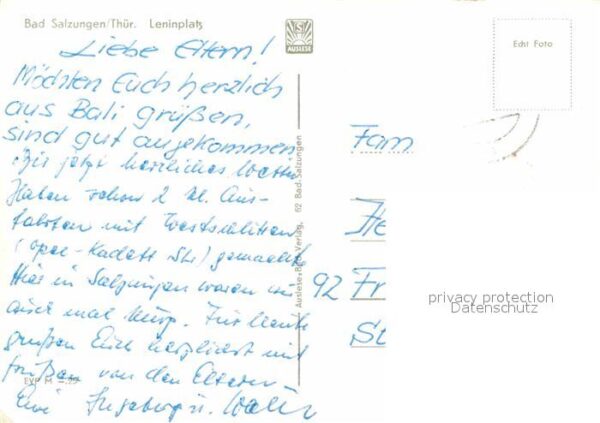 Bad Salzungen/Thür. Leninplatz
AUSLESE
Echt Foto
Liebe Eltern!
Möchten Euch herzlich
aus Bali grüßen,
sind gut angekommen
Bis jetzt herrliches Wetter
Haben schon 2 kl. Aus-
fahrten mit
(Opel-Kadett ) gemacht
Hier in Salzungen waren wir
auch mal kurz. Für heute
grüßen Euch herzlichst mit
Grüßen von den Eltern
Eure Ingeborg u. Walter
EVP M
Auslese-Bild-Verlag, 62 Bad-Salzungen
Fam
He
92 Fr
St
privacy protection
Datenschutz